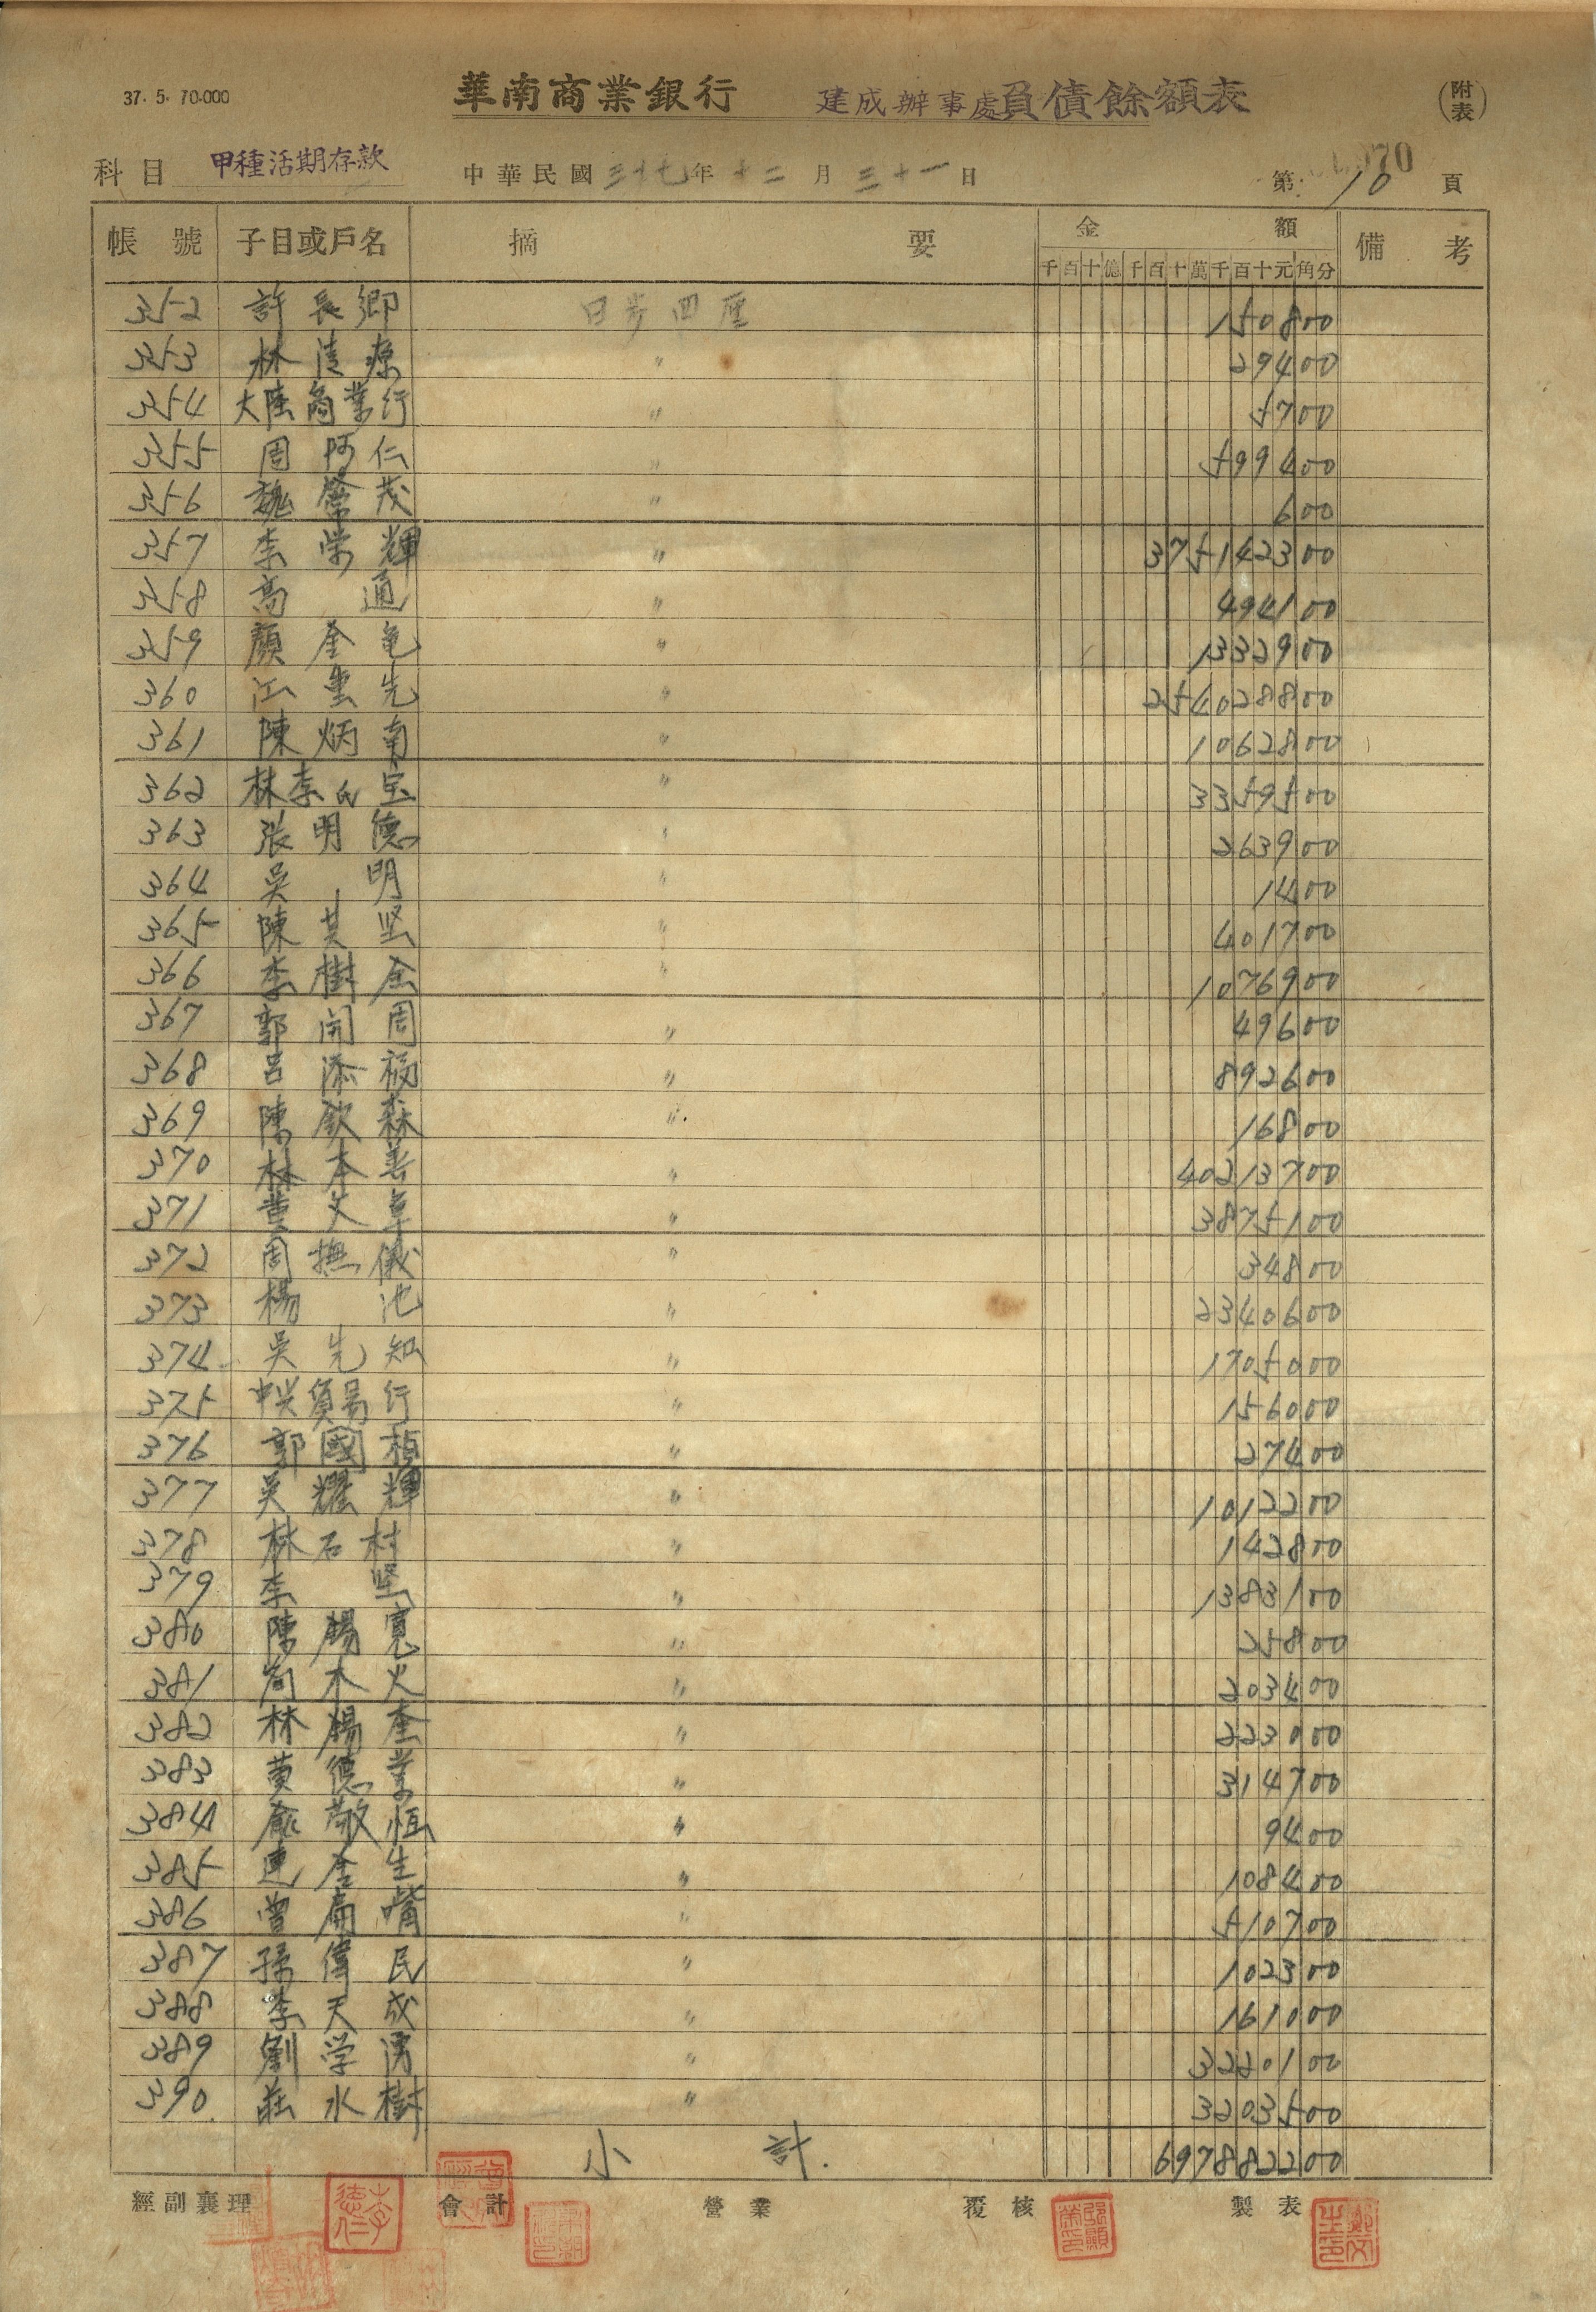 37. 5. 70.000
華南商業銀行 建成辦事處負債餘額表 (附表)
科目 甲種活期存款 中華民國三十七年十二月三十一日 第10頁
帳號 子目或戶名 摘要 金額 備考
千百十億千百十萬千百十元角分
352 許長鄉 日步四厘 150800
353 林清源 〃 29400
354 大陸商業行 〃 5700
355 周阿仁 〃 599400
356 魏榮茂 〃 600
357 李榮輝 〃 375142300
358 高通 〃 494100
359 顏金龟 〃 1332900
360 江 先 〃 254028800
361 陳炳南 〃 1062800
362 林李氏宝 〃 3359500
363 張明德 〃 263900
364 吳明 〃 1400
365 陳其坚 〃 401700
366 李樹金 〃 1076900
367 郭開周 〃 49600
368 呂添福 〃 892600
369 陳欽森 〃 16800
370 林本善 〃 40213700
371 黄文章 〃 3875100
372 周撫儀 〃 34800
373 楊池 〃 2340600
374 吳先知 〃 1705000
375 中兴貿易行 〃 156000
376 郭國楨 〃 27400
377 吳耀輝 〃 1012200
378 林石村 〃 142800
379 李坚 〃 1383100
380 陳錫寬 〃 25800
381 木火 〃 203400
382 林錫奎 〃 223000
383 黄德業 〃 314700
384 俞敬恒 〃 9400
385 連金生 〃 108400
386 曾扁嘴 〃 510700
387 孫偉民 〃 102300
388 李天成 〃 161000
389 劉学湧 〃 3220100
390 莊水樹 〃 3203500
小計. 697882200
經副襄理 會計 營業 覆核 製表
李德仁